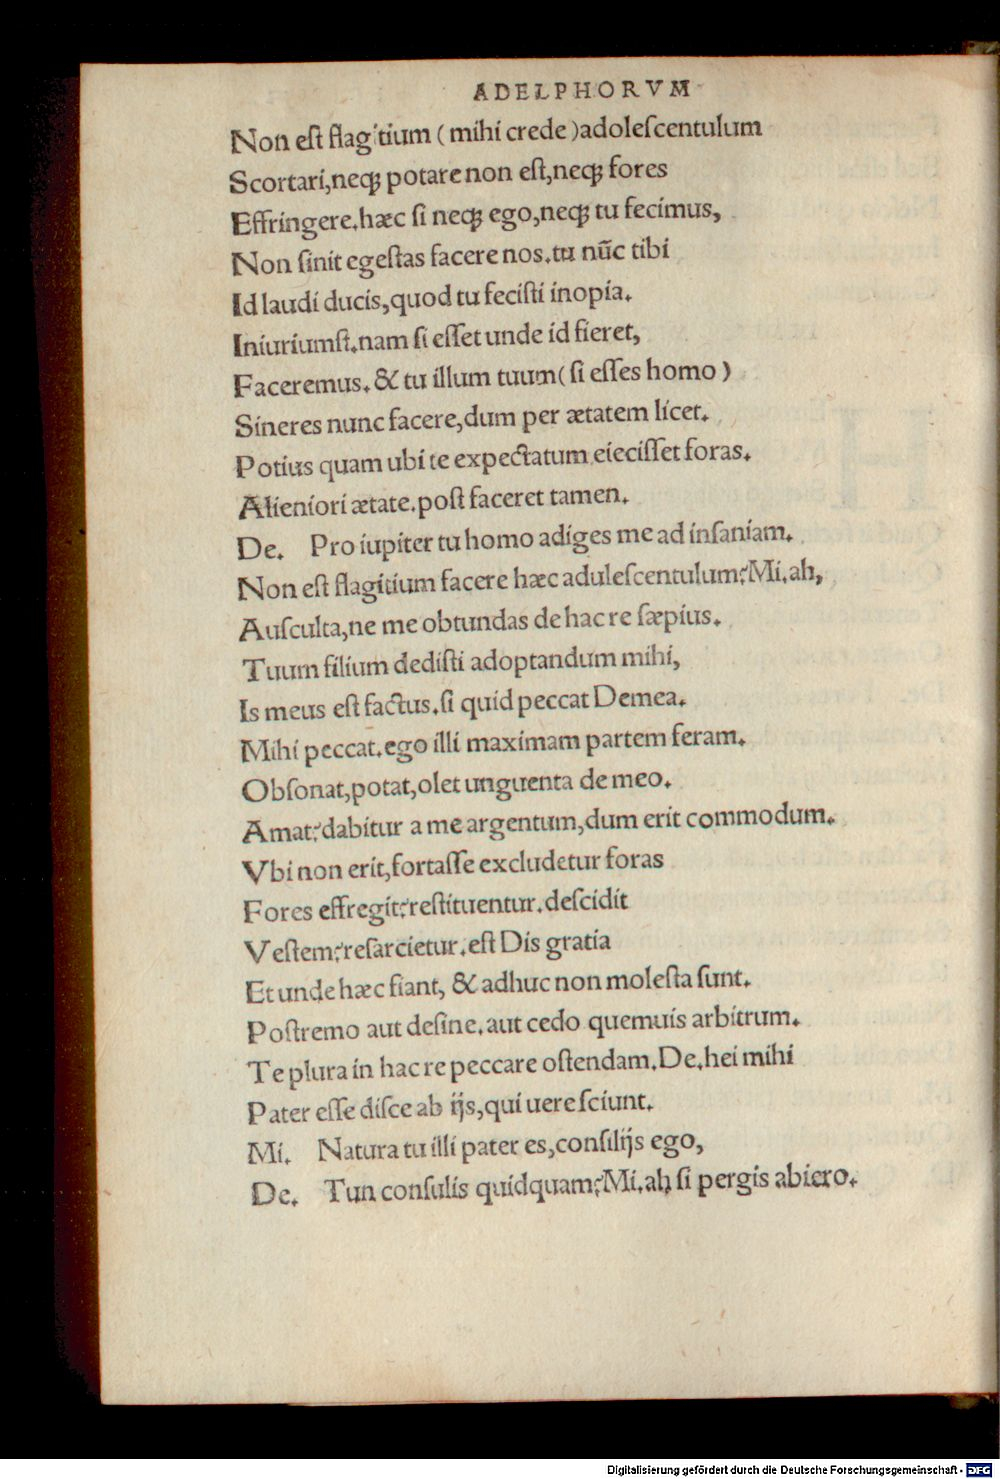 ADELPHORVM
Non eſt flagitium (mihi crede) adoleſcentulum
Scortari, neq; potare non eſt, neq; fores
Effringere. hæc ſi neq; ego, neq; tu fecimus,
Non ſinit egeſtas facere nos. tu nũc tibi
Id laudi ducis, quod tu feciſti inopia.
Iniuriumſt. nam ſi eſſet unde id fieret,
Faceremus. & tu illum tuum (ſi eſſes homo)
Sineres nunc facere, dum per ætatem licet.
Potius quam ubi te expectatum eieciſſet foras.
Alieniori ætate. poſt faceret tamen.
De. Pro iupiter tu homo adiges me ad inſaniam.
Non eſt flagitium facere hæc aduleſcentulum? Mi. ah,
Auſculta, ne me obtundas de hac re ſæpius.
Tuum filium dediſti adoptandum mihi,
Is meus eſt factus. ſi quid peccat Demea.
Mihi peccat. ego illi maximam partem feram.
Obſonat, potat, olet unguenta de meo.
Amat? dabitur a me argentum, dum erit commodum.
Vbi non erit, fortaſſe excludetur foras
Fores effregit? reſtituentur. deſcidit
Veſtem? reſarcietur. eſt Dis gratia
Et unde hæc fiant, & adhuc non moleſta ſunt.
Poſtremo aut deſine. aut cedo quemuis arbitrum.
Te plura in hac re peccare oſtendam. De. hei mihi
Pater eſſe diſce ab ijs, qui uere ſciunt.
Mi. Natura tu illi pater es, conſilijs ego,
De. Tun conſulis quidquam? Mi. ah ſi pergis abiero.
Digitalisierung gefördert durch die Deutsche Forschungsgemeinschaft - DFG